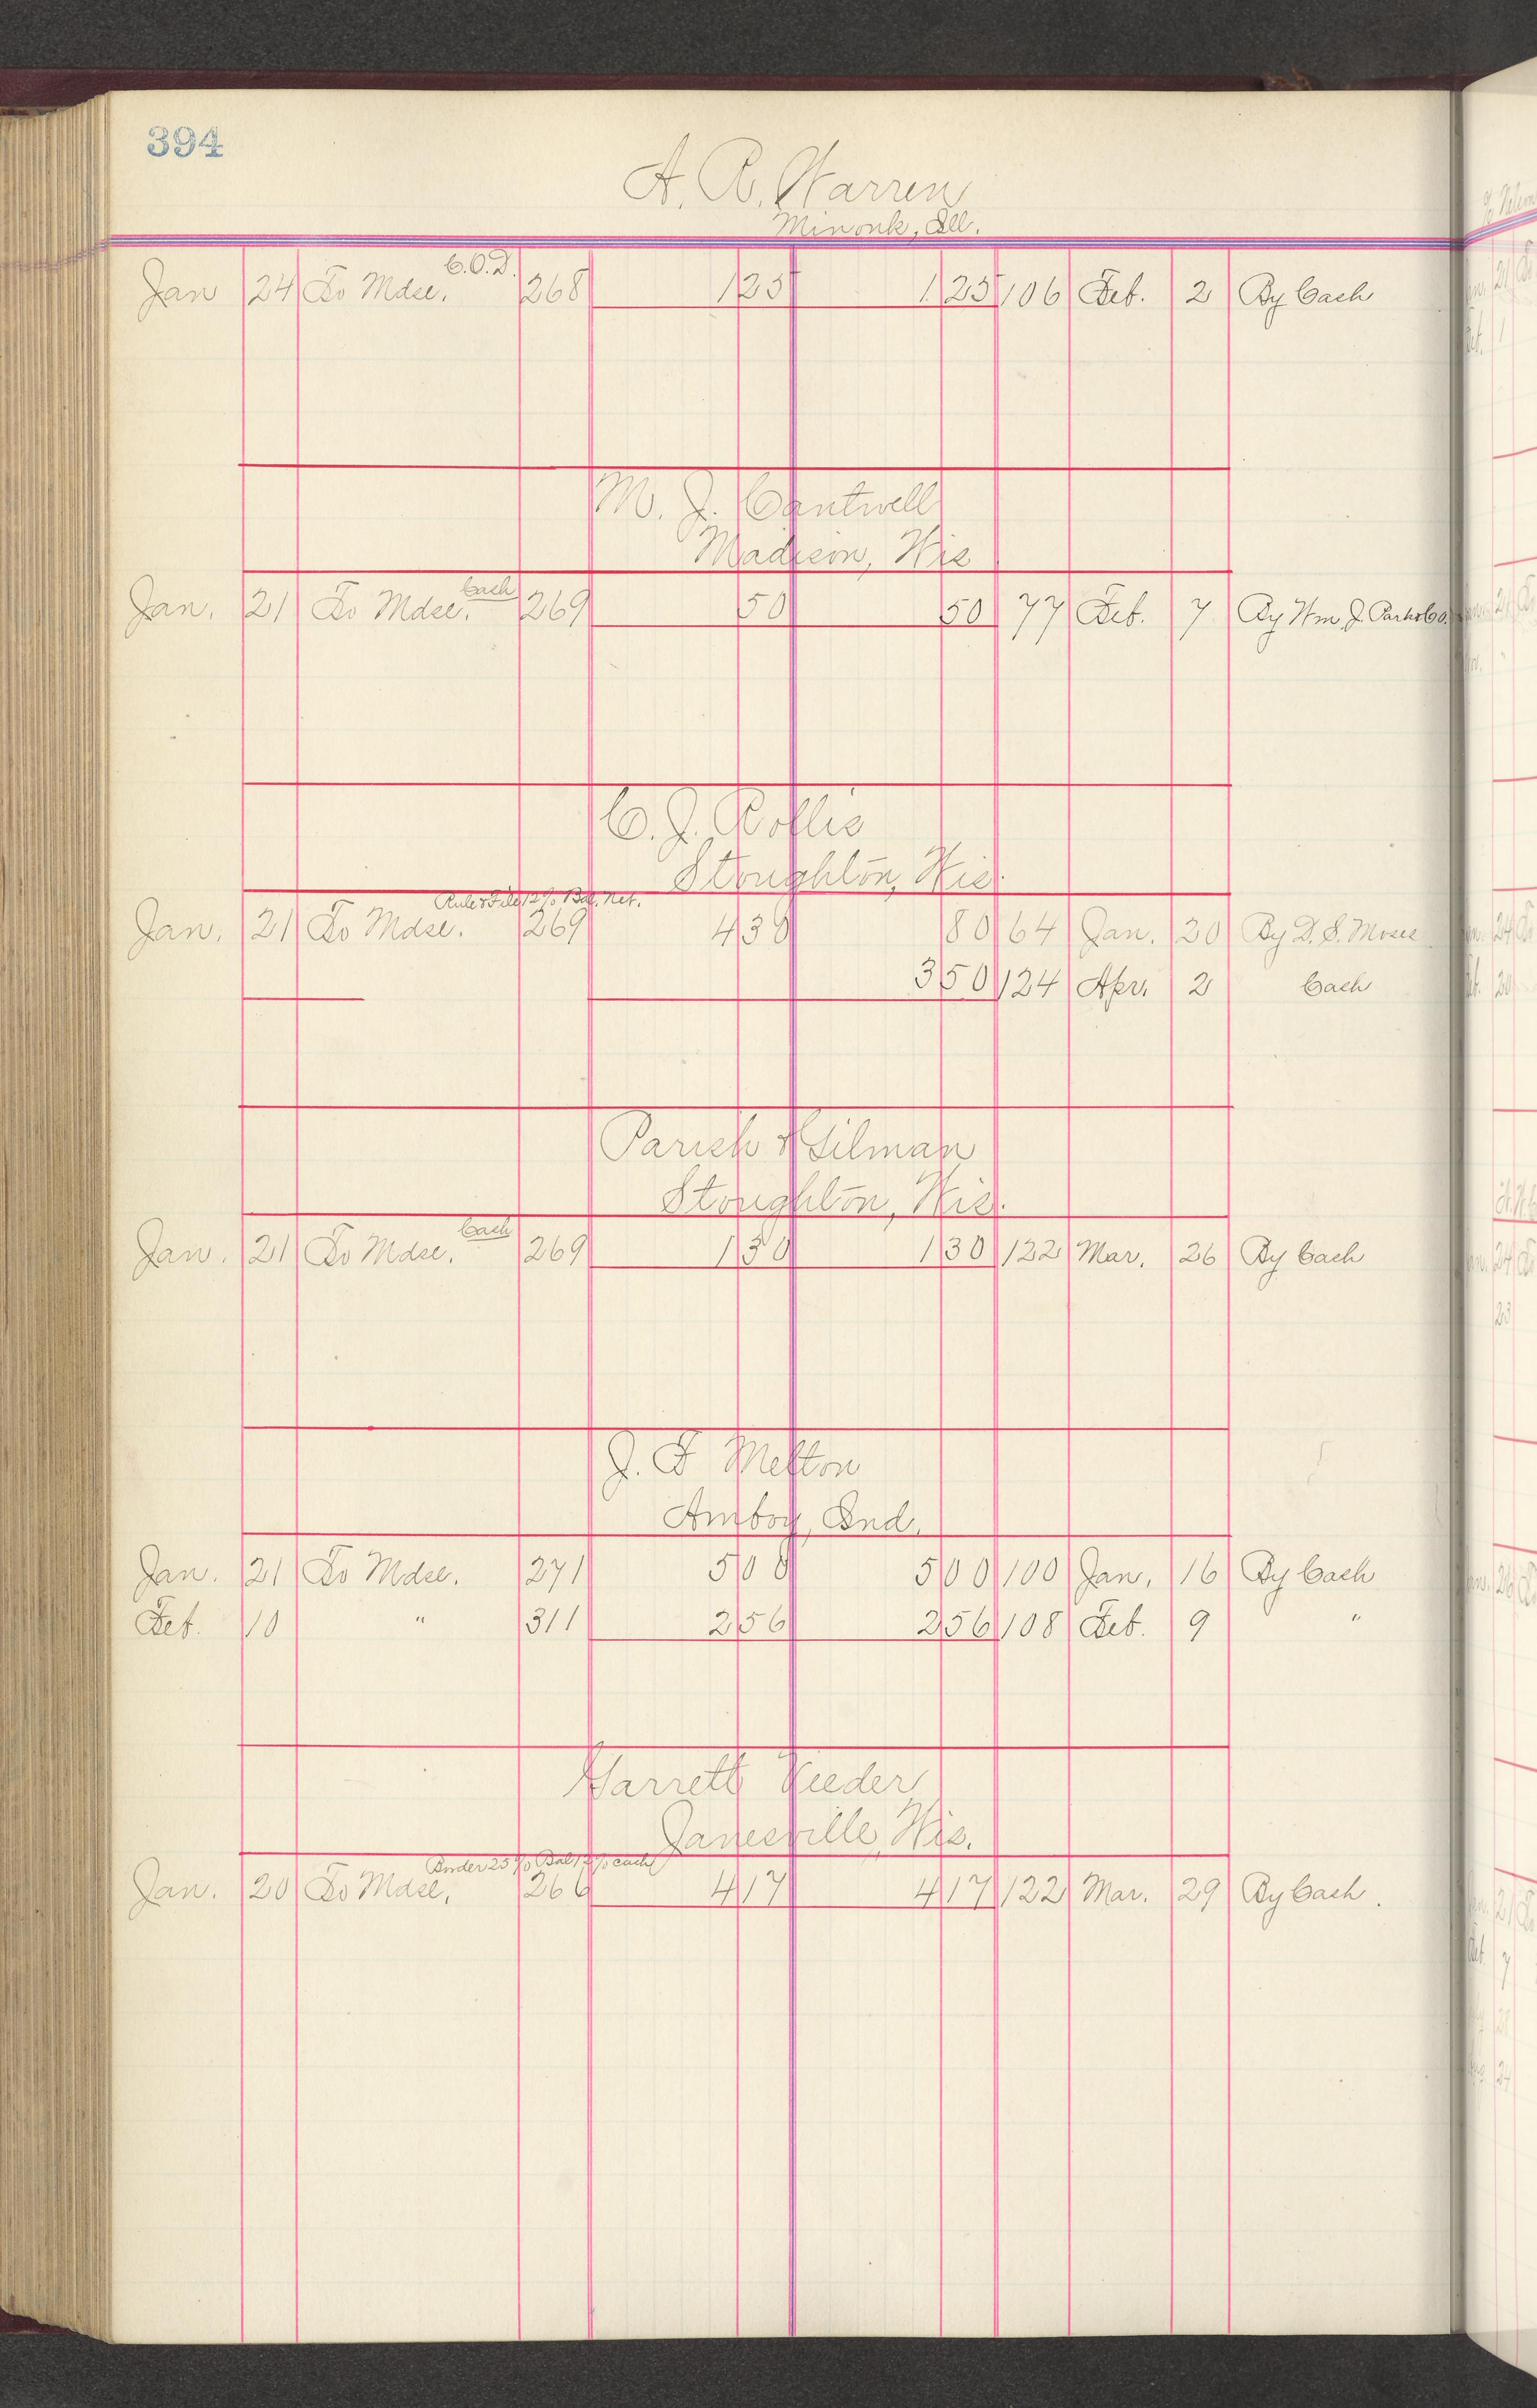 394
A. R. Warren
Minonk, Ill.
C.O.D.
Jan 24 To Mdse. 268 1 25 1 25 106 Feb. 2 By Cash
M. J. Cantwell
Madison, Wis
Cash
Jan. 21 To Mdse. 269 50 50 77 Feb. 7 By Wm J. Parks Co.
C. J. Rollis
Stoughton, Wis.
Rule & File 12% Bal. Net.
Jan. 21 To Mdse. 269 4 30 80 64 Jan. 20 By D. S. Moses
3 50 124 Apr. 2 Cash
Parish & Gilman
Stoughton, Wis.
Cash
Jan. 21 To Mdse. 269 1 30 1 30 122 Mar. 26 By Cash
J. F Melton
Amboy, Ind.
Jan. 21 To Mdse. 271 5 00 5 00 100 Jan. 16 By Cash
Feb. 10 " 311 2 56 2 56 108 Feb. 9 "
Garrett Veeder
Janesville, Wis.
25% Bal 12% cash
Jan. 20 To Mdse. 266 4 17 4 17 122 Mar. 29 By Cash.